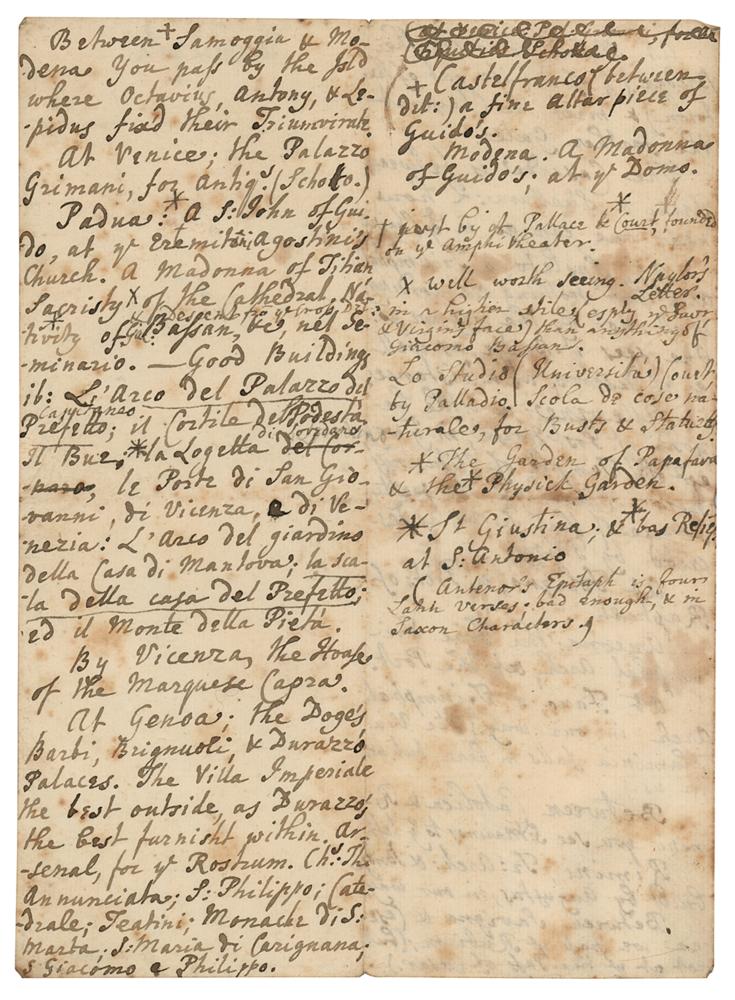 Between + Samoggia & Mo-
dena You pass by the Isld
where Octavius, Antony, & Le-
-pidus fixd their Triumvirate.
At Venice; the Palazzo
Grimani, for Antiqs. (Schotto.)
Padua: * A S: John of Gui-
do, at ye Eremitani Agostini's
Church. A Madonna of Titian
Sacristy X of the Cathedral. Na-
tivity of Bassan, &c, nel Se-
-minario. — Good Buildings
ib: L'Arco del Palazzo del
Capitaneo
Prefetto; il Cortile del Podestà
Il Bue, * la Logetta del Cor-
di Cornaro
-naro, le Porte di San Gio-
-vanni, di Vicenza, e di Ve-
nezia: L'Arco del giardino
della Casa di Mantova; la sca-
-la della casa del Prefetto;
ed il Monte della Pietà.
By Vicenza, the House
of the Marquese Capra.
At Genoa; the Doge's
Barbi, Brignuoli, & Durazzo
Palaces. The Villa Imperiale
the best outside, as Durazzo's
the best furnisht within. Ar-
-senal, for ye Rostrum. Chs: The
Annunciata; S: Philippo; Cate-
-drale; Teatini; Monache di S:
Marta; S: Maria di Carignana;
S Giacomo e Philippo.
+ Castelfranco (between
dit:) a fine Altar piece of
Guido's.
Modena. A Madonna
of Guido's; at ye Domo.
† just by yt Pallace & Court, founded
on ye Amphitheater.
X well worth seeing. Naylor's
Letter.
in a higher stile (esply ye
& Virgin's face) than any thing of
Giacomo Bassan.
Lo Studio (Universita) Court,
by Palladio. Scola de cose na-
-turale, for Busts & Statues
* The Garden of Papafava
& the * Physick Garden.
* St Giustina; & * bas Reliefs
at S: Antonio
(Antenor's Epitaph is four
Latin verses; bad enough, & in
Saxon Characters.)